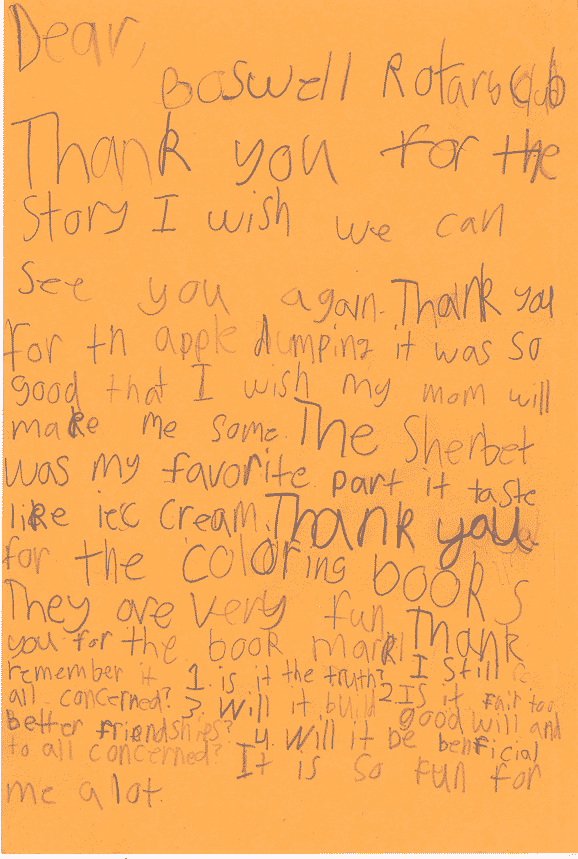 Dear,
Boswell Rotary Club
Thank you for the
Story I wish we can
See you again. Thank you
for th apple dumping it was so
good that I wish my mom will
make me some. The Sherbet
was my favorite part it taste
like iec cream. Thank you
for the coloring books
They are very fun. Thank
you for the book mark! I still
remember it 1. is it the truth? 2 Is it fair too
all concerned? 3. Will it build good will and
better friendships? 4. Will it be benificial
to all concerned? It is so fun for
me alot